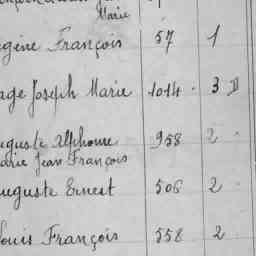 Marie
gène François 57 1
age Joseph Marie 1014 . 3 D
uguste Alphonse 958 2
arie Jean François
uguste Ernest 506 2
ouis François 558 2